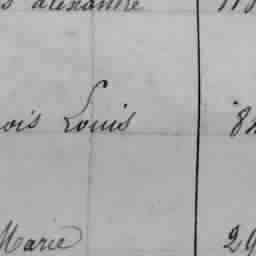 s alexandre 11
ois Louis 8
Marie 29